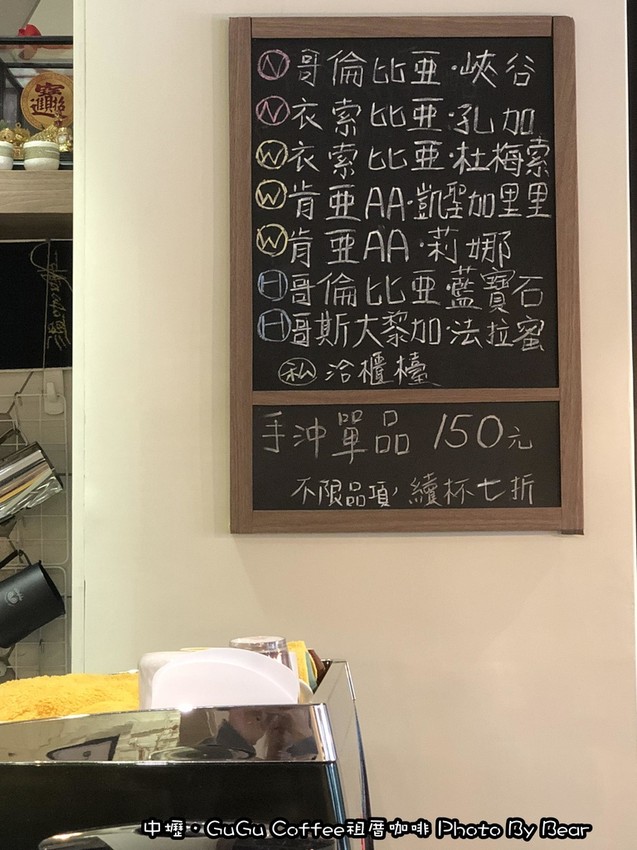 招財進寶
Ⓝ哥倫比亞·峽谷
Ⓝ衣索比亞·孔加
Ⓦ衣索比亞·杜梅索
Ⓦ肯亞AA·凱聖加里里
Ⓦ肯亞AA·莉娜
Ⓗ哥倫比亞·藍寶石
Ⓗ哥斯大黎加·法拉蜜
㊙ 洽櫃檯
手沖單品 150元
不限品項, 續杯七折
中壢·GuGu Coffee祖厝咖啡 Photo By Bear